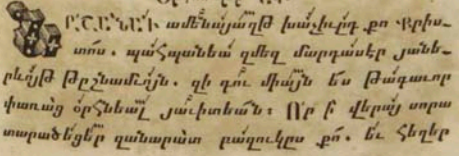 ՐՇԱՆԱԻ ամենայաղթ խաչիւրդ քո Քրիս-
տոս. պահպանեա զմեզ մարդասէր յանե-
րևոյթ թըշնամւոյն. զի դու միայն ես թագաւոր
փառաց օրհնեալ յաւիտեան։ Որ ի վերայ սորա
տարածեցեր զանարատ բազուկըս քո. եւ հեղեր